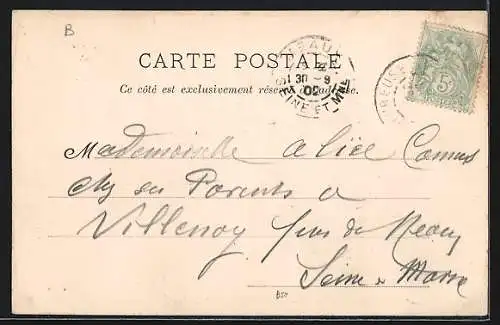 B
CARTE POSTALE
Ce côté est exclusivement réservé à l'adresse
MEAUX
30 - 9
05
SEINE-ET-MNE
5
Mademoiselle Alice Camus
chez ses Parents a
Villenoy près de Meaux
Seine & Marne